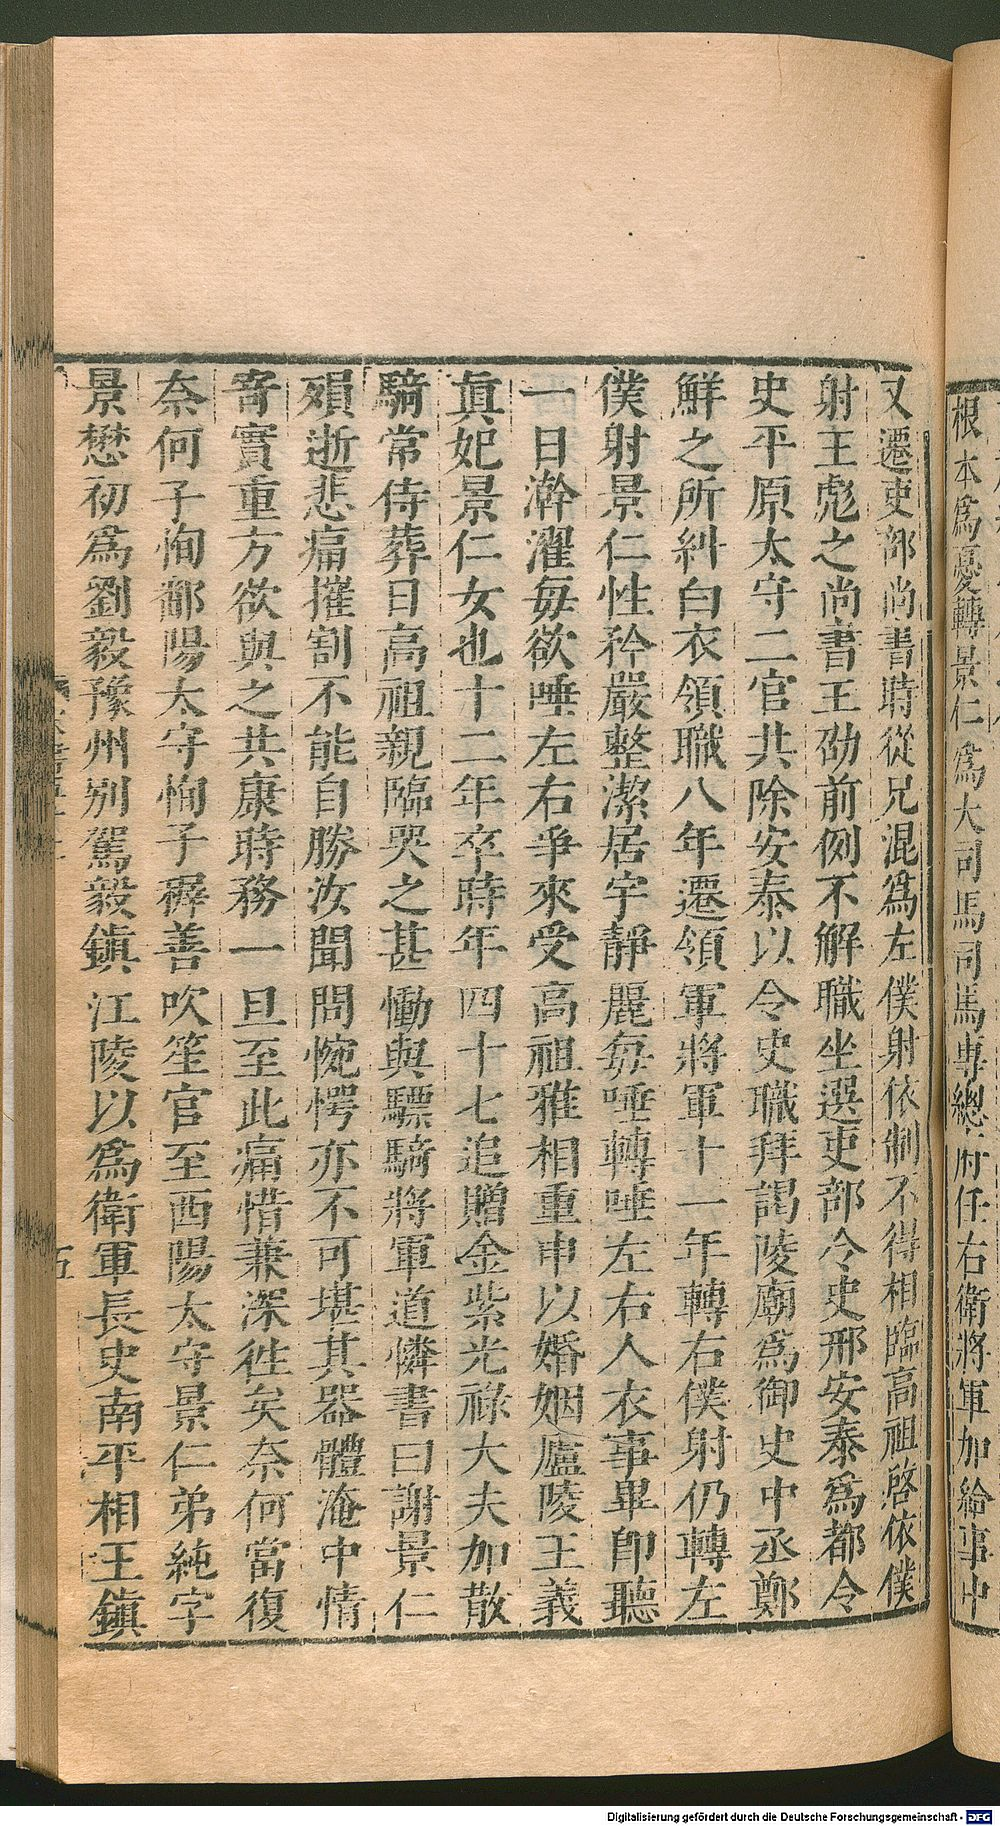 根本爲憂轉景仁爲大司馬司馬專總府任右衛將軍加給事中
又遷吏部尚書時從兄混爲左僕射依制不得相臨高祖啓依僕
射王彪之尚書王劭前例不解職坐選吏部令史邢安泰爲都令
史平原太守二官共除安泰以令史職拜謁陵廟爲御史中丞鄭
鮮之所糾白衣領職八年遷領軍將軍十一年轉右僕射仍轉左
僕射景仁性矜嚴整潔居宇靜麗每唾轉唾左右人衣事畢即聽
一日澣濯每欲唾左右爭來受高祖雅相重申以婚姻廬陵王義
眞妃景仁女也十二年卒時年四十七追贈金紫光祿大夫加散
騎常侍葬日高祖親臨哭之甚慟與驃騎將軍道憐書曰謝景仁
殞逝悲痛摧割不能自勝汝聞問惋愕亦不可堪其器體淹中情
寄實重方欲與之共康時務一旦至此痛惜兼深徃矣奈何當復
奈何子恂鄱陽太守恂子稺善吹笙官至酉陽太守景仁弟純字
景懋初爲劉毅豫州別駕毅鎮江陵以爲衛軍長史南平相王鎮
五
Digitalisierung gefördert durch die Deutsche Forschungsgemeinschaft - DFG